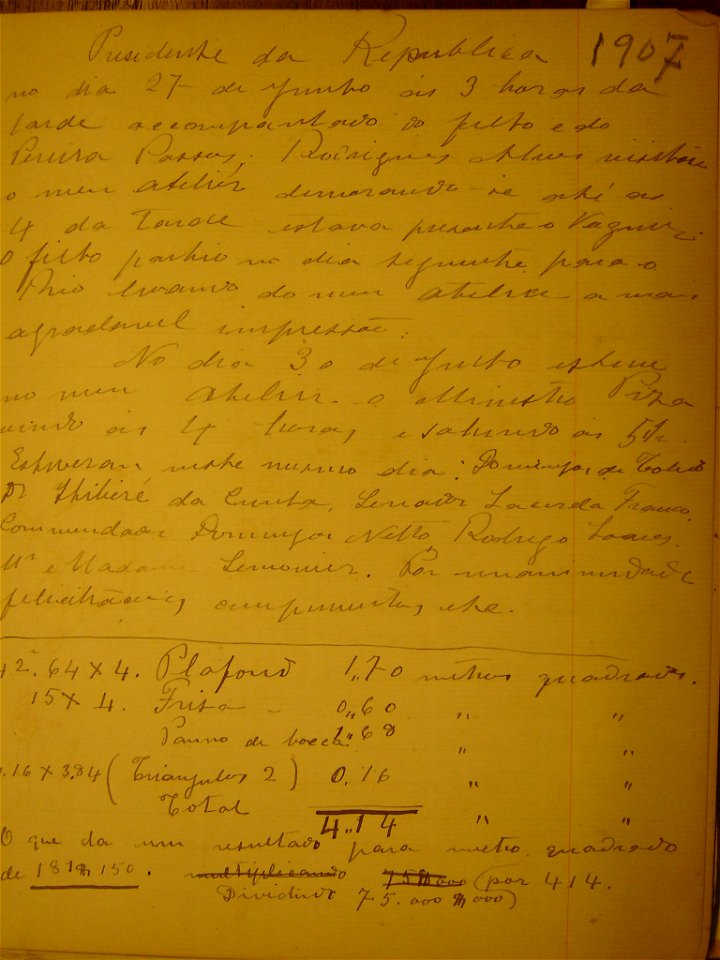 Presidente da Republica 1907
no dia 27 de Junho ás 3 horas da
tarde accompanhado do filho e do
Pereira Passos, Rodrigues Alves visitou
o meu atelier demorando-se até as
4 da tarde estava presente o
O filho partio no dia seguinte para o
Rio levando do meu atelier a mais
agradavel impressão.
No dia 30 de Junho esteve
no meu atelier o Ministro Piza
vindo ás 4 horas e sahindo ás 5h.
Estiveram neste mesmo dia: Domingos de Toledo
Dr Ibibiré da Cunha, Senador Lacerda Franco,
Commendador Domingos Netto, Rodrigo Soares.
Mr e Madame Lemonier. Por unanimidade
felicitações, cumprimentos, etc.
64 x 4. Plafond 1,,70 metros quadrados.
15 x 4. Frisa - 0,,60 " "
Panno de bocca 1,,68 " "
.16 x 3.84 (Triangulos 2) 0.16 " "
Total 4,,14 " "
O que da um resultado para metro quadrado
de 181$150. multiplicando 75$000 (por 414.
Dividindo 75.000$000)